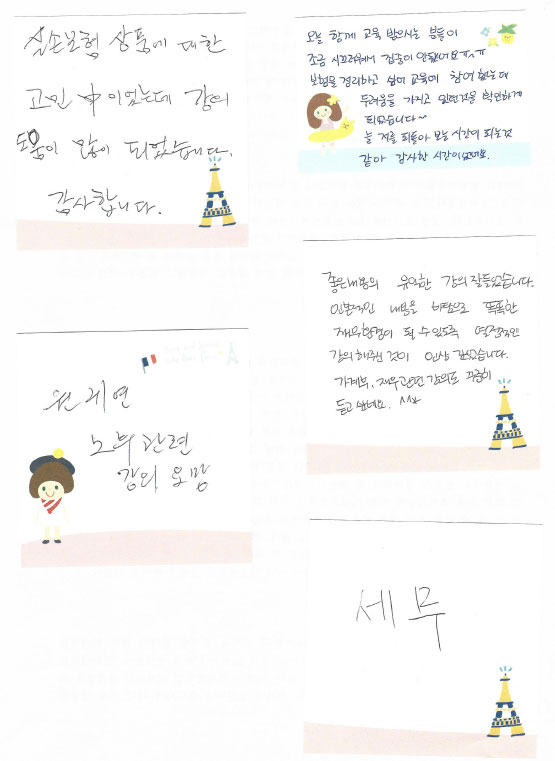 실손보험 상품에 대한
고민 中이었는데 강의
도움이 많이 되었습니다.
감사합니다.
오늘 함께 교육 받으시는 분들이
조금 시끄러워서 집중이 안됐어요ㅠㅠ
보험을 정리하고 싶어 교육에 참여 했는데
두려움을 가지고 있던것을 확인하게
되었습니다~
늘 저를 되돌아 보는 시간이 되는것
같아 감사한 시간이었네요.
좋은내용의 유익한 강의 잘들었습니다.
인본적인 내용을 바탕으로 똑똑한
재무환경이 될 수 있도록 열정적인
강의 해주신 것이 인상 깊었습니다.
가계부, 재무관련 강의도 꾸준히
듣고 싶네요. ^^
노무관련
강의 요망
세무